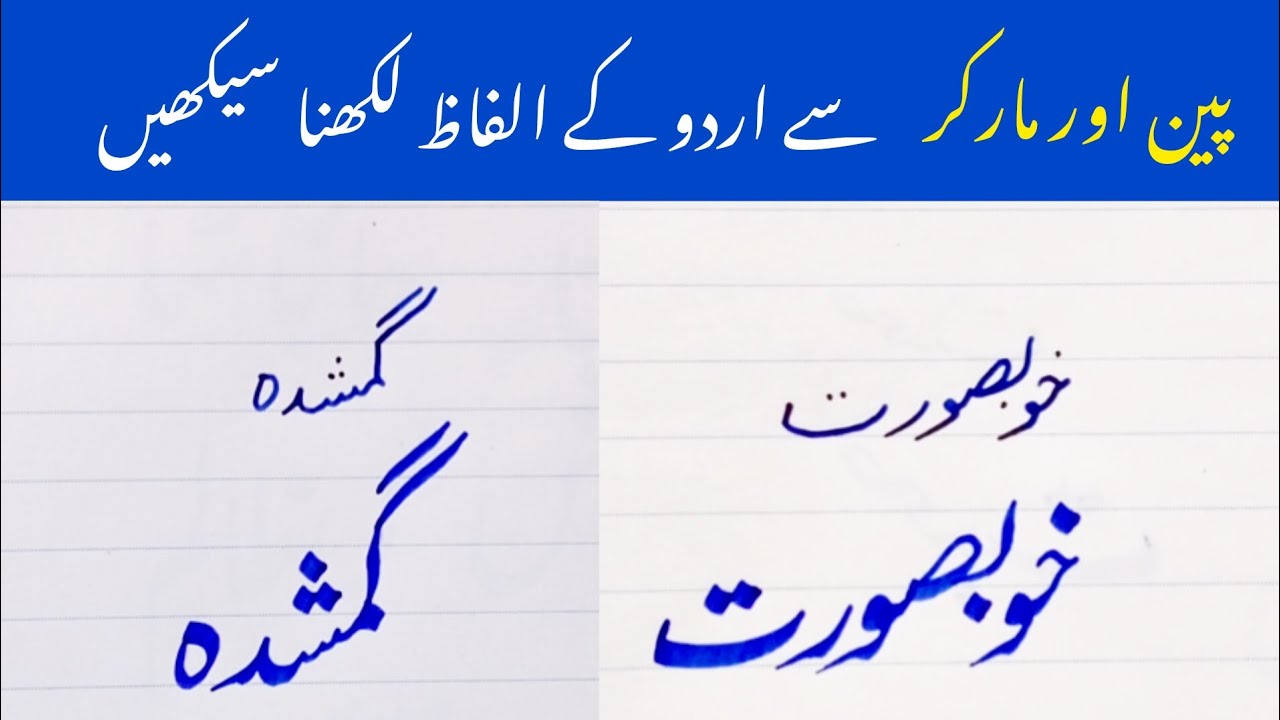 پین اور مارکر سے اردو کے الفاظ لکھنا سیکھیں
خوبصورت
گمشدہ
خوبصورت
گمشدہ